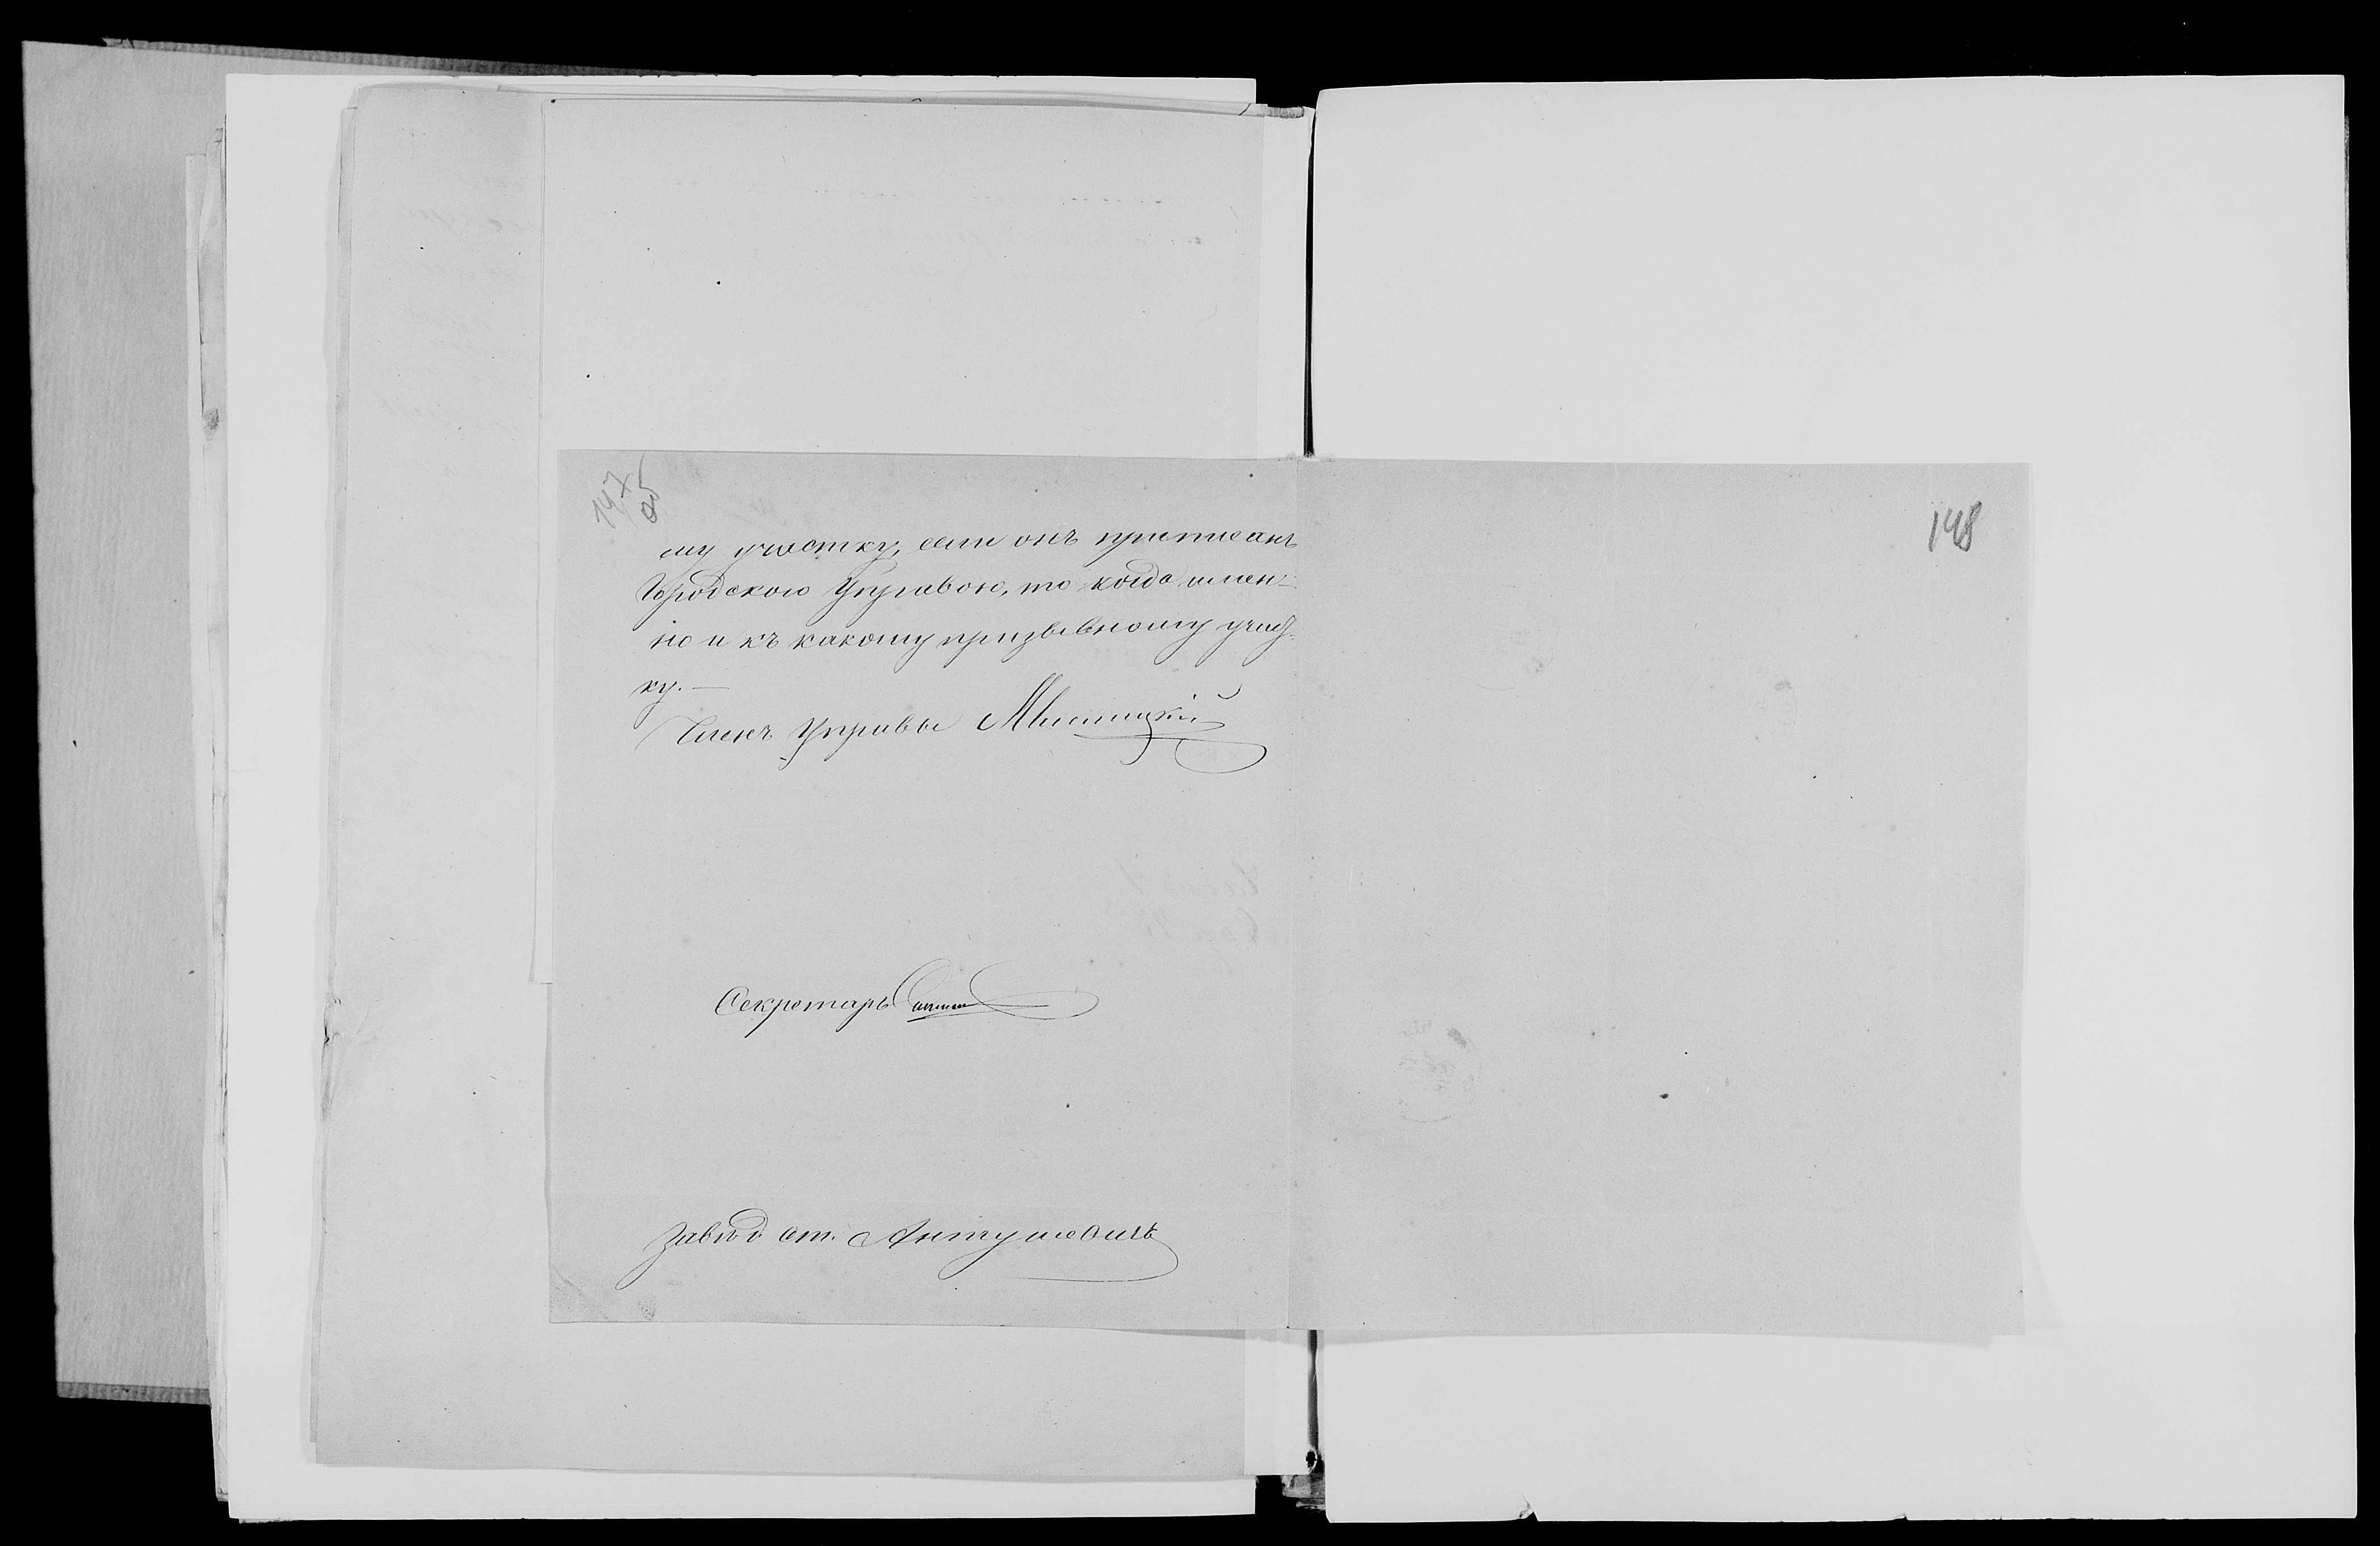 147
об
му участку, если онъ приписанъ
Городскою Управою, то когда имен-
но и къ какому призывному участ-
ку. —
Членъ Управы
Секретарь
Завѣд. ст. Антушевичъ
148